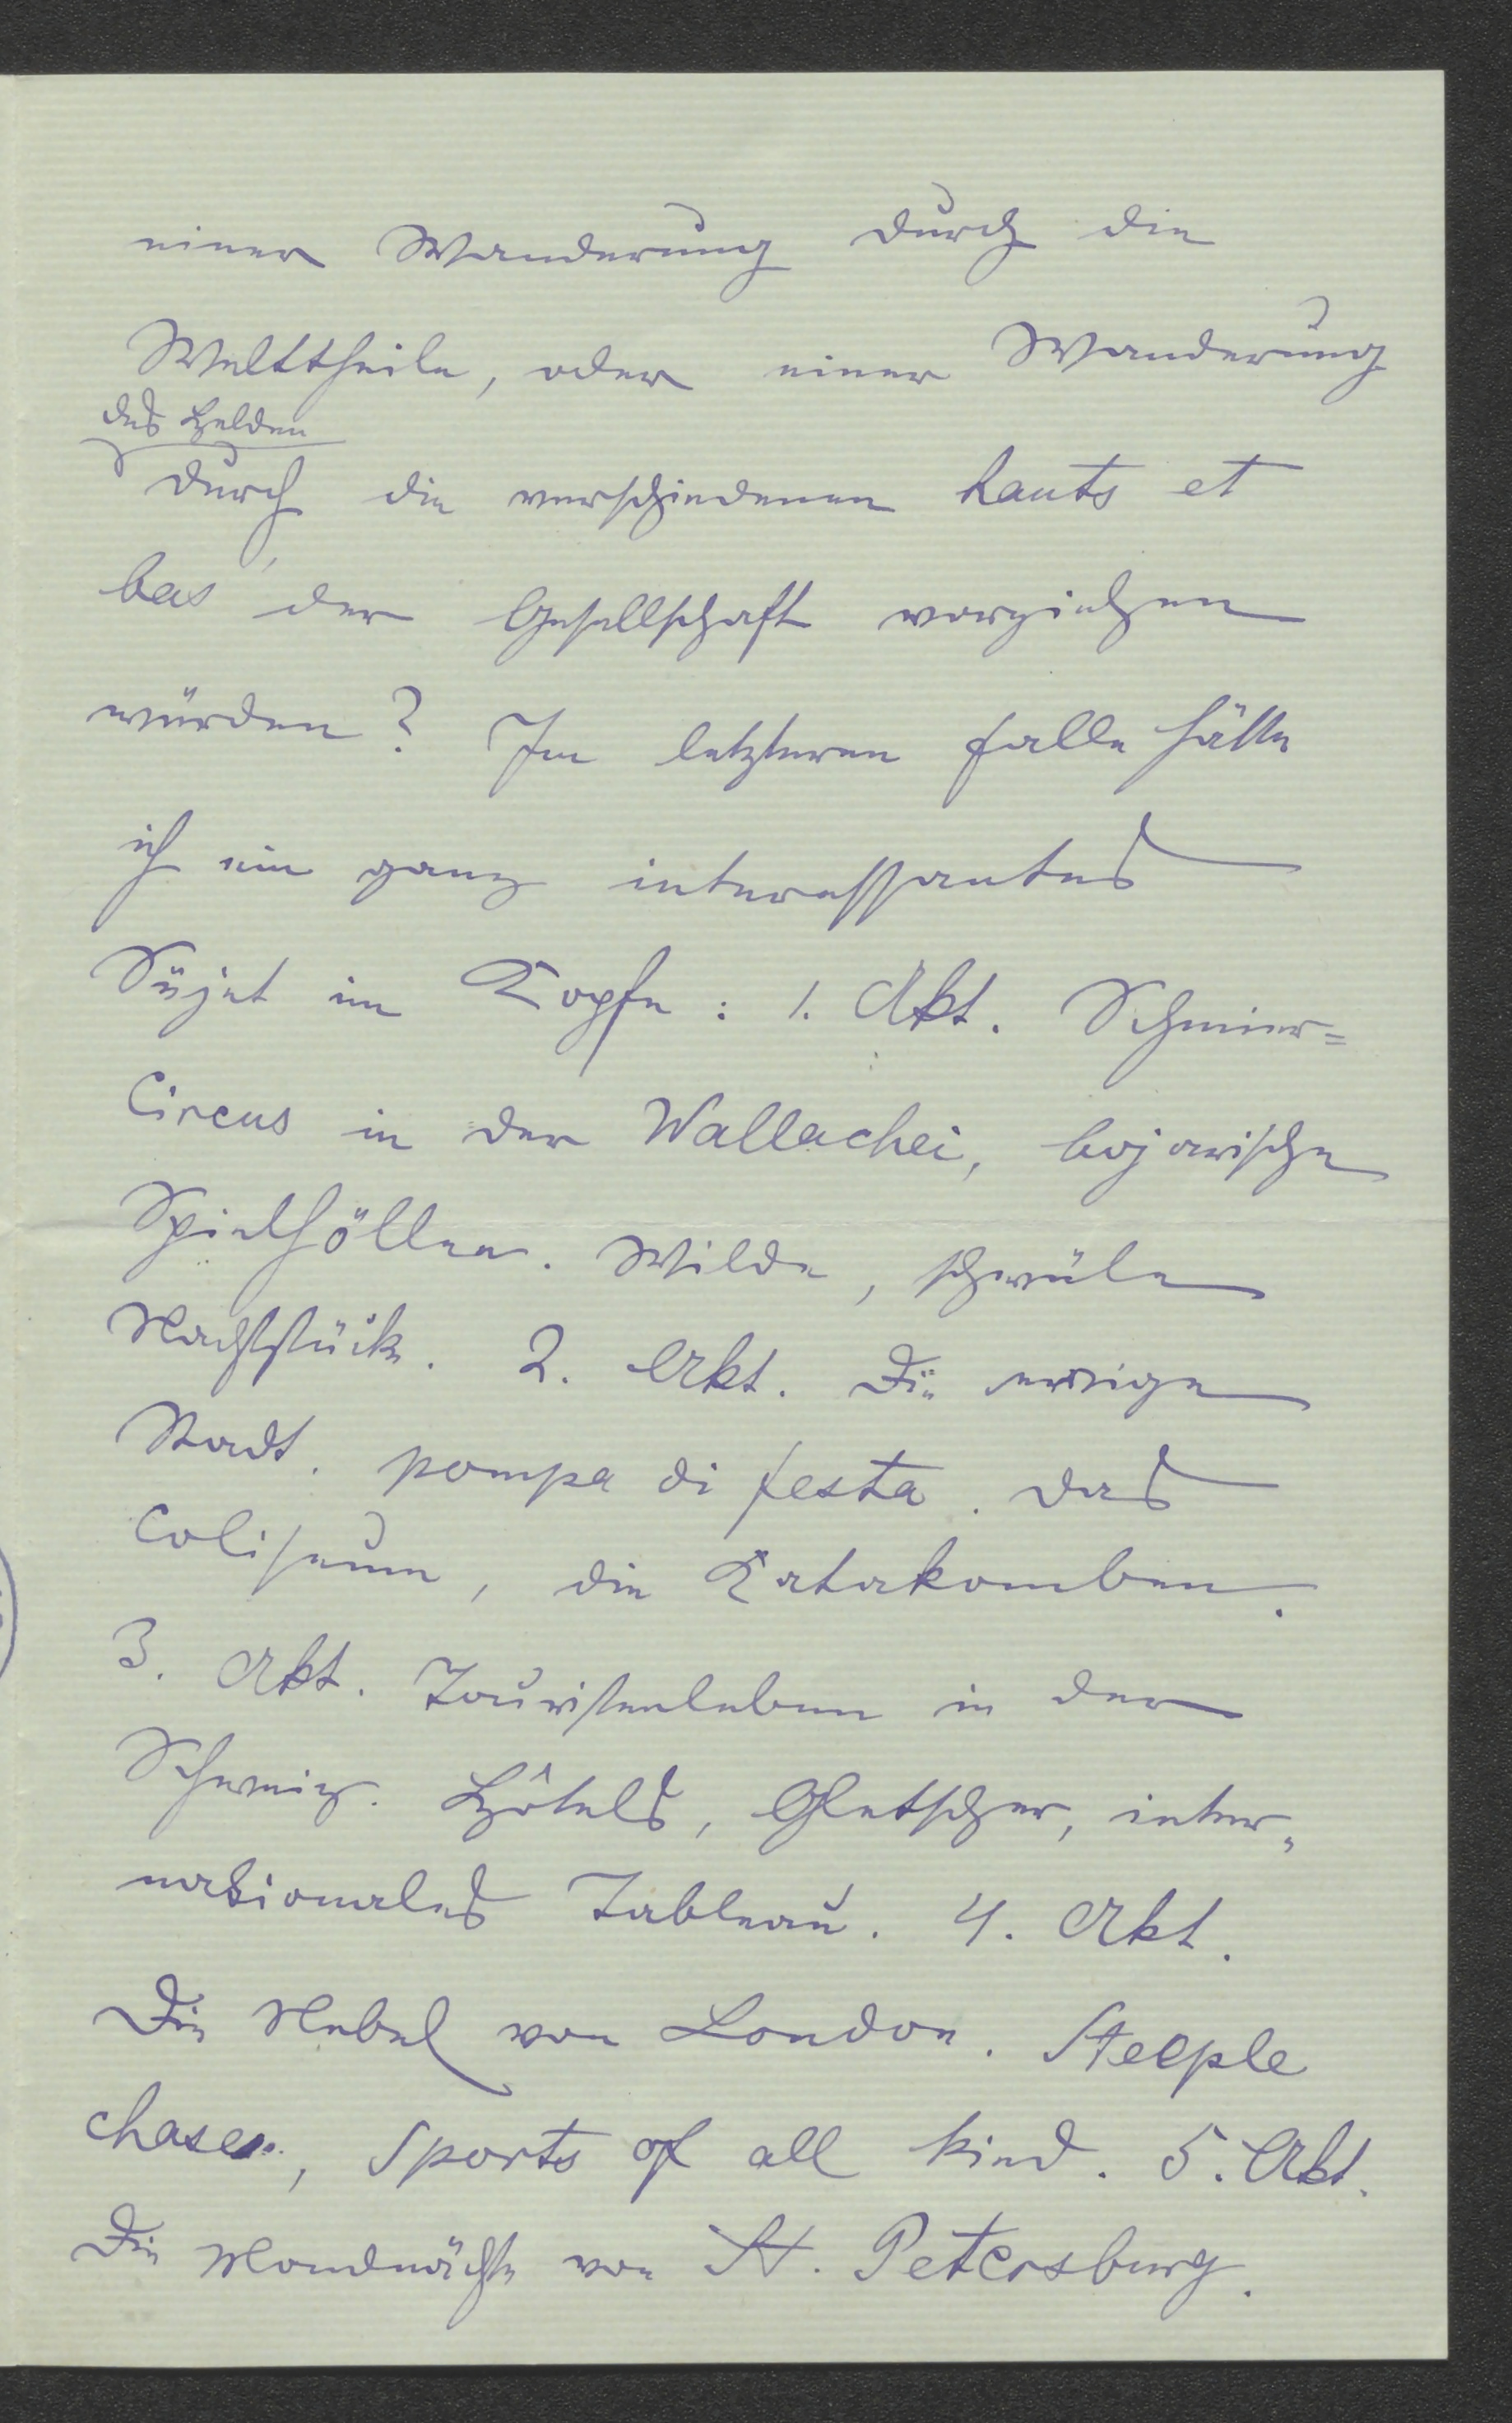 einer Wanderung durch die
Welttheile, oder einer Wanderung
des Helden
durch die verschiedenen hauts et
bas der Gesellschaft vorziehen
würden? Im letzteren Falle hätte
ich ein ganz interessantes
Süjet im Kopfe: 1. Akt. Schmier=
Circus in der Wallachei, bojarische
Spielhöllen. Wilde, schwüle
Nachtstücke. 2. Akt. Die ewige
Stadt. pompa di festa. das
Coliseum, die Katakomben.
3. Akt. Touristenleben in der
Schweiz. Hôtels, Gletscher, inter„
nationales Tableau. 4. Akt.
Die Nebel von London. Steeple
chases, Sports of all kind. 5. Akt.
Die Mondnächte von St. Petersburg.